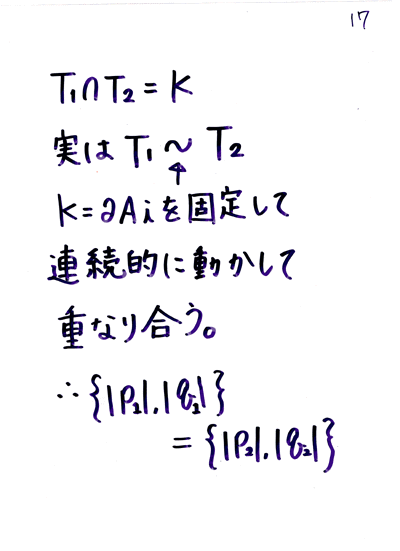 17
T₁∩T₂=K
実は T₁ ~ T₂
↑
K=∂Aiを固定して
連続的に動かして
重なり合う。
∴{|P₂|,|q₂|}
={|P₂|,|q₂|}